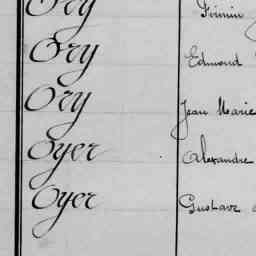 Ory Firmin
Ory Edmond
Ory Jean Marie
Oyer Alexandre
Oyer Gustave